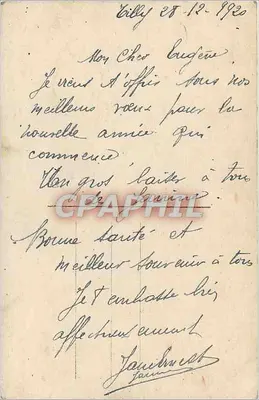 Tilly 28-12-1920
Mon cher Eugène
Je viens t'offrir tous nos
meilleurs vœux pour la
nouvelle année qui
commence
Un gros baiser à tous
de
CPAPHIL
Bonne santé et
meilleur souvenir à tous
Je t'embrasse bien
affectueusement